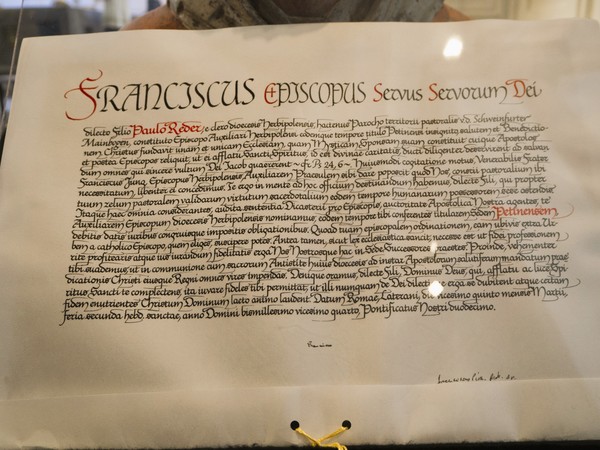 FRANCISCUS EPISCOPUS Servus Servorum Dei
dilecto Filio Paulo Reder, e clero dioecesis Herbipolensis, hactenus Parocho territorii pastoralis v.d. Schweinfurter
Mainbogen, constituto Episcopo Auxiliari Herbipolensi eodemque tempore titulo Petinensi insignito, salutem et Benedictio-
nem. Christus fundavit unam et unicam Ecclesiam, quam Mysticam Sponsam suam constituit atque Apostolos
et postea Episcopos reliquit, ut ei afflatu Sancti Spiritus, id est divinae caritatis, duces diligenter
dum omnes qui sincere vultum Dei Jacob quaererent - cfr. Ps. 24, 6 -. Huiusmodi cogitatione motus, Venerabilis Frater
Franciscus Jung, Episcopus Herbipolensis, Auxiliarem Praesulem sibi dare poposcit quod Nos, conserii pastoralium ibi
necessitatum, libenter ei concedimus. Te ergo in mente ad hoc officium destinandum habemus, dilecte Fili, qui propter
tuum zelum pastoralem validarum virtutum sacerdotalium eodem tempore humanarum possessorem ecce ostendis.
Itaque haec omnia considerantes, audita sententia Dicasterii pro Episcopis, auctoritate Apostolica Nostra agentes, te
Auxiliarem Episcopum dioecesis Herbipolensis nominamus, eodem tempore tibi conferentes titularem Sedem Petinensem,
debitis datis iuribus congruisque impositis obligationibus. Quod tuam episcopalem ordinationem, eam ubivis extra Ur-
bem a catholico Episcopo, quem eliges, suscipere potes. Antea tamen, sicut lex ecclesiastica sancit, necesse est ut fidei professionem
rite profitearis atque ius iurandum fidelitatis erga Nos Nostrosque hac in Sede Successores praestes. Proinde, vehementer
tibi suademus, ut in communione cum sacrorum Antistite huius dioecesis ad instar Apostolorum salutiferam mandatum prae-
dicationis Christi eiusque Regni omnes vires impendas. Denique oramus, dilecte Fili, Dominus Deus, qui, afflatu ac luce Spi-
ritus Sancti te complectens, ita iuvare fideles tibi permittat, ut illi numquam de Dei dilectione erga se dubitent atque certam
fidem enutrientes Christum Dominum laeto animo laudent. Datum Romae, Laterani, die vicesimo quinto mensis Martii,
feria secunda hebd. sanctae, anno Domini bismillesimo vicesimo quarto, Pontificatus Nostri duodecimo.
Franciscus